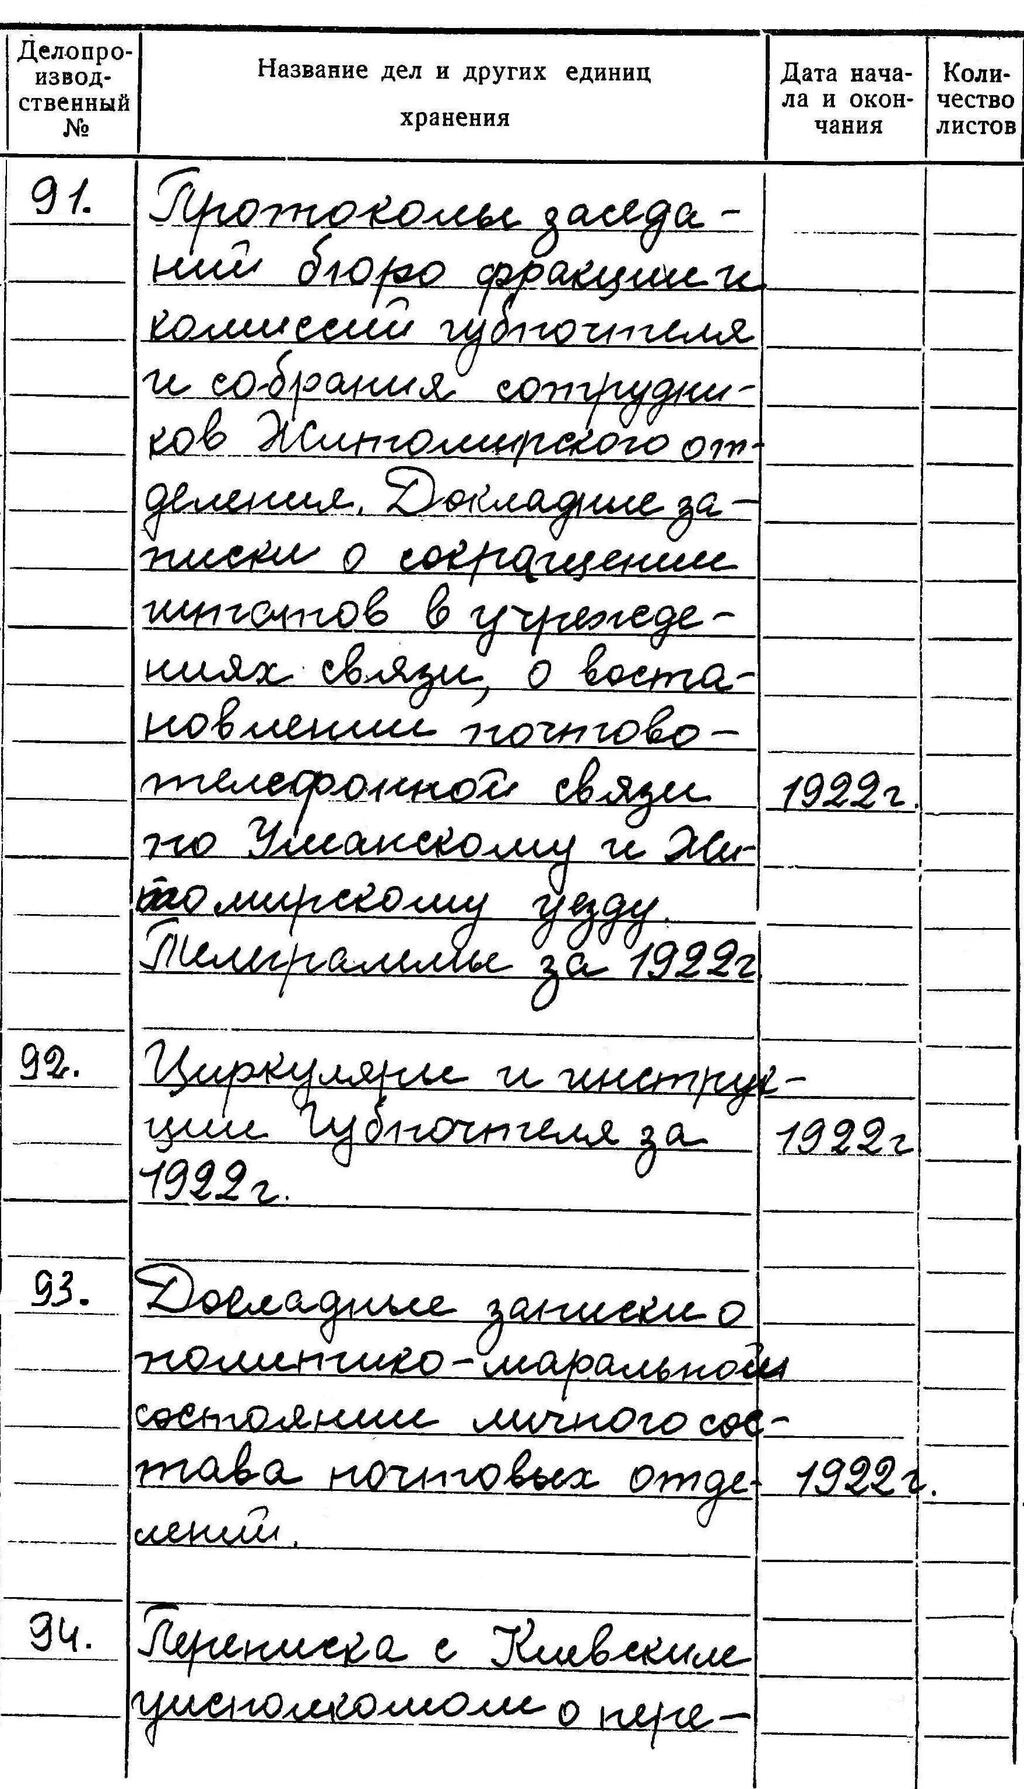 Делопро-
извод-
ственный
№
Название дел и других единиц
хранения
Дата нача-
ла и окон-
чания
Коли-
чество
листов
91. Протоколы заседа-
ний бюро фракции и
комиссий губпочтеля
и собрания сотрудни-
ков Житомирского от-
деления. Докладные за-
писки о сокращении
штатов в учрежде-
ниях связи, о воста-
новлении почтово-
телефонной связи 1922г.
по Уманскому и Жи-
томирскому уезду.
Телеграммы за 1922г
92. Циркуляры и инструк-
ции Губпочтеля за 1922г
1922г.
93. Докладные записки о
политико-маральном
состоянии личного сос-
тава почтовых отде- 1922г.
лений.
94. Переписка с Киевским
уисполкомом о пере-